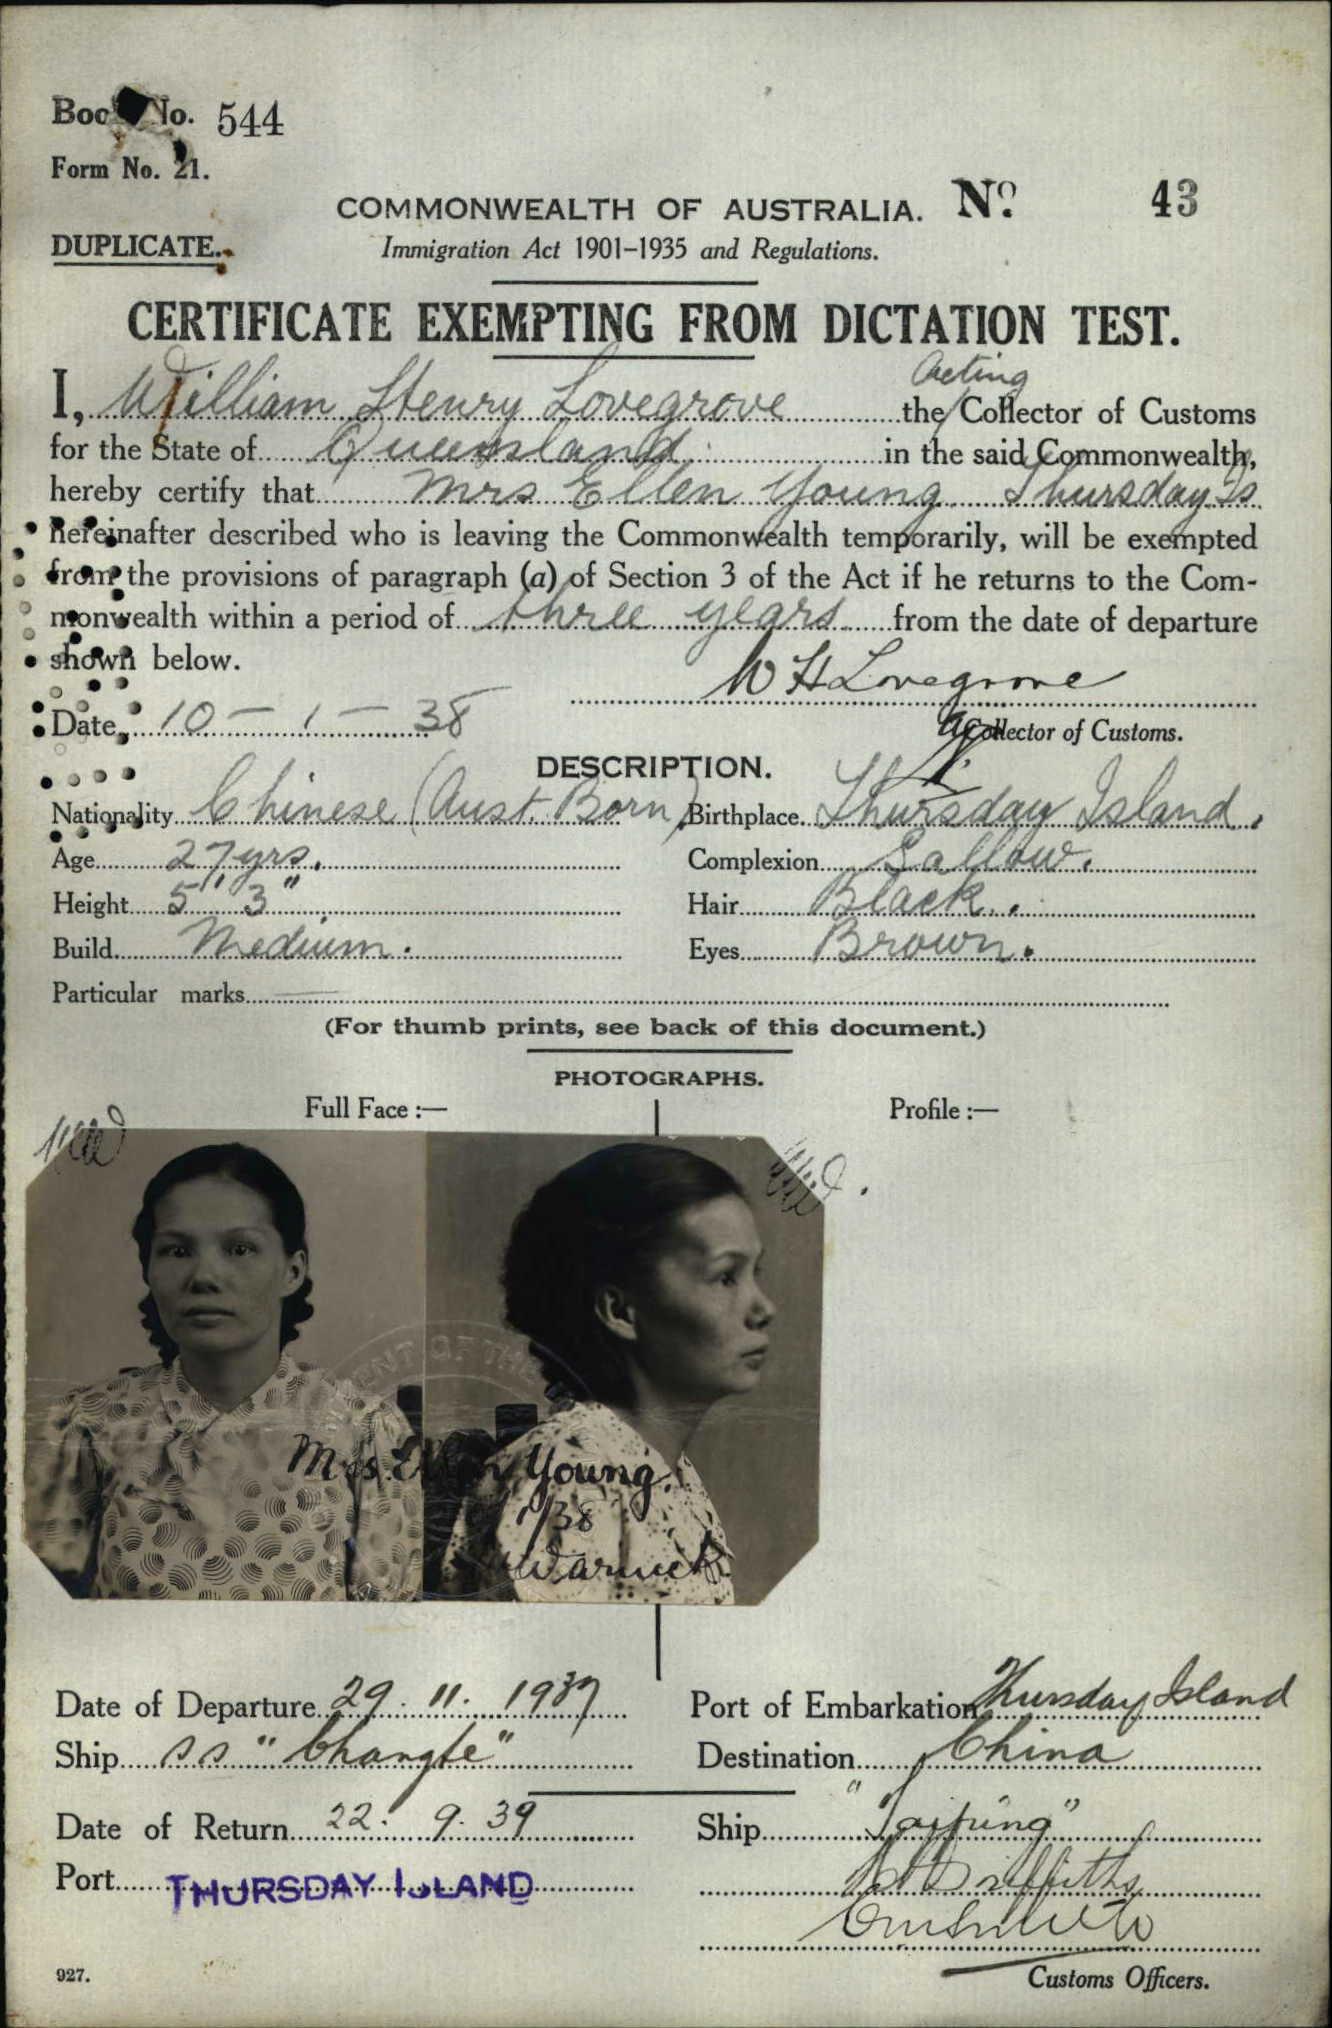 Book No. 544
Form No. 21.
COMMONWEALTH OF AUSTRALIA. No. 43
DUPLICATE.
Immigration Act 1901-1935 and Regulations.
CERTIFICATE EXEMPTING FROM DICTATION TEST.
Acting
I, William Henry Lovegrove the Collector of Customs
for the State of Queensland in the said Commonwealth,
hereby certify that Mrs Ellen Young Thursday Is
hereinafter described who is leaving the Commonwealth temporarily, will be exempted
from the provisions of paragraph (a) of Section 3 of the Act if he returns to the Com-
monwealth within a period of three years from the date of departure
shown below.
W H Lovegrove
Date 10 - 1 - 38
Collector of Customs.
DESCRIPTION.
Nationality Chinese (Aust. Born) Birthplace Thursday Island.
Age 27 yrs. Complexion Sallow.
Height 5' 3" Hair Black.
Build Medium. Eyes Brown.
Particular marks —
(For thumb prints, see back of this document.)
PHOTOGRAPHS.
Full Face :— Profile :—
MENT OF THE
Mrs. Ellen Young
38
Warwick
Date of Departure 29. 11. 1937 Port of Embarkation Thursday Island
Ship ss "Changte" Destination China
Date of Return 22. 9. 39 Ship "Taiping"
Port THURSDAY ISLAND
Griffiths
927.
Customs Officers.